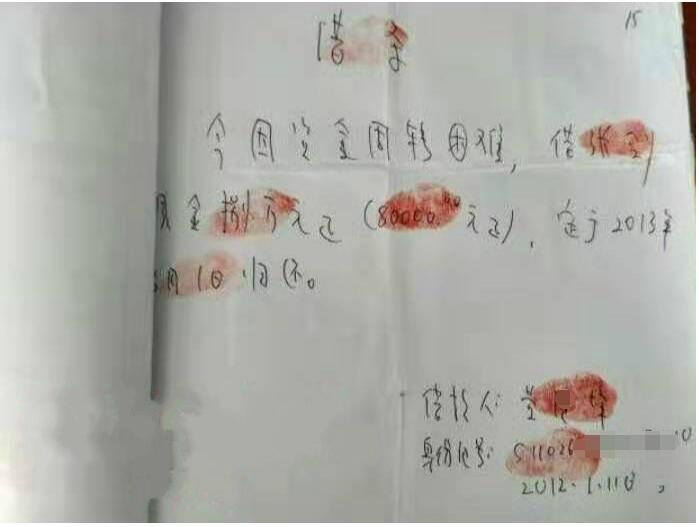 15
借条
今因资金周转困难，借张到
现金捌万元正（80000.00元正），定于2013年
月1日归还。
借款人：
身份证号：511026
2012.1.11日。